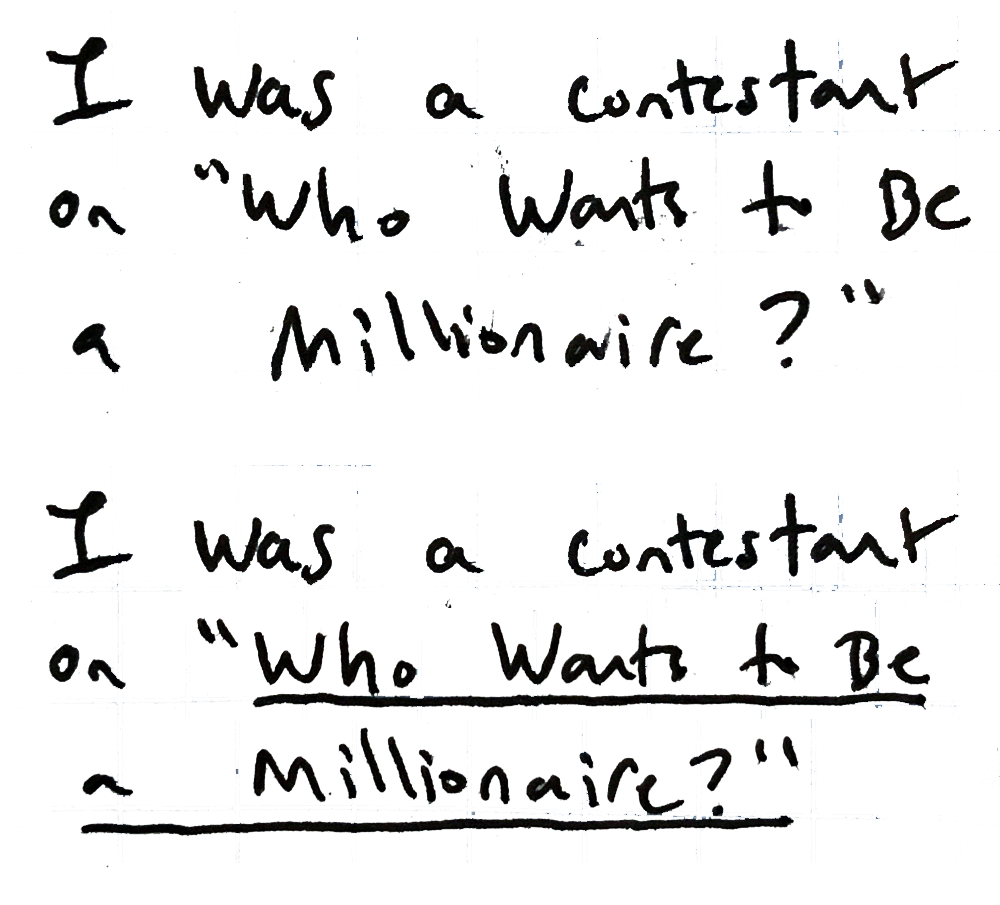 I was a contestant
on "Who Wants to Be
a Millionaire?"
I was a contestant
on "Who Wants to Be
a Millionaire?"